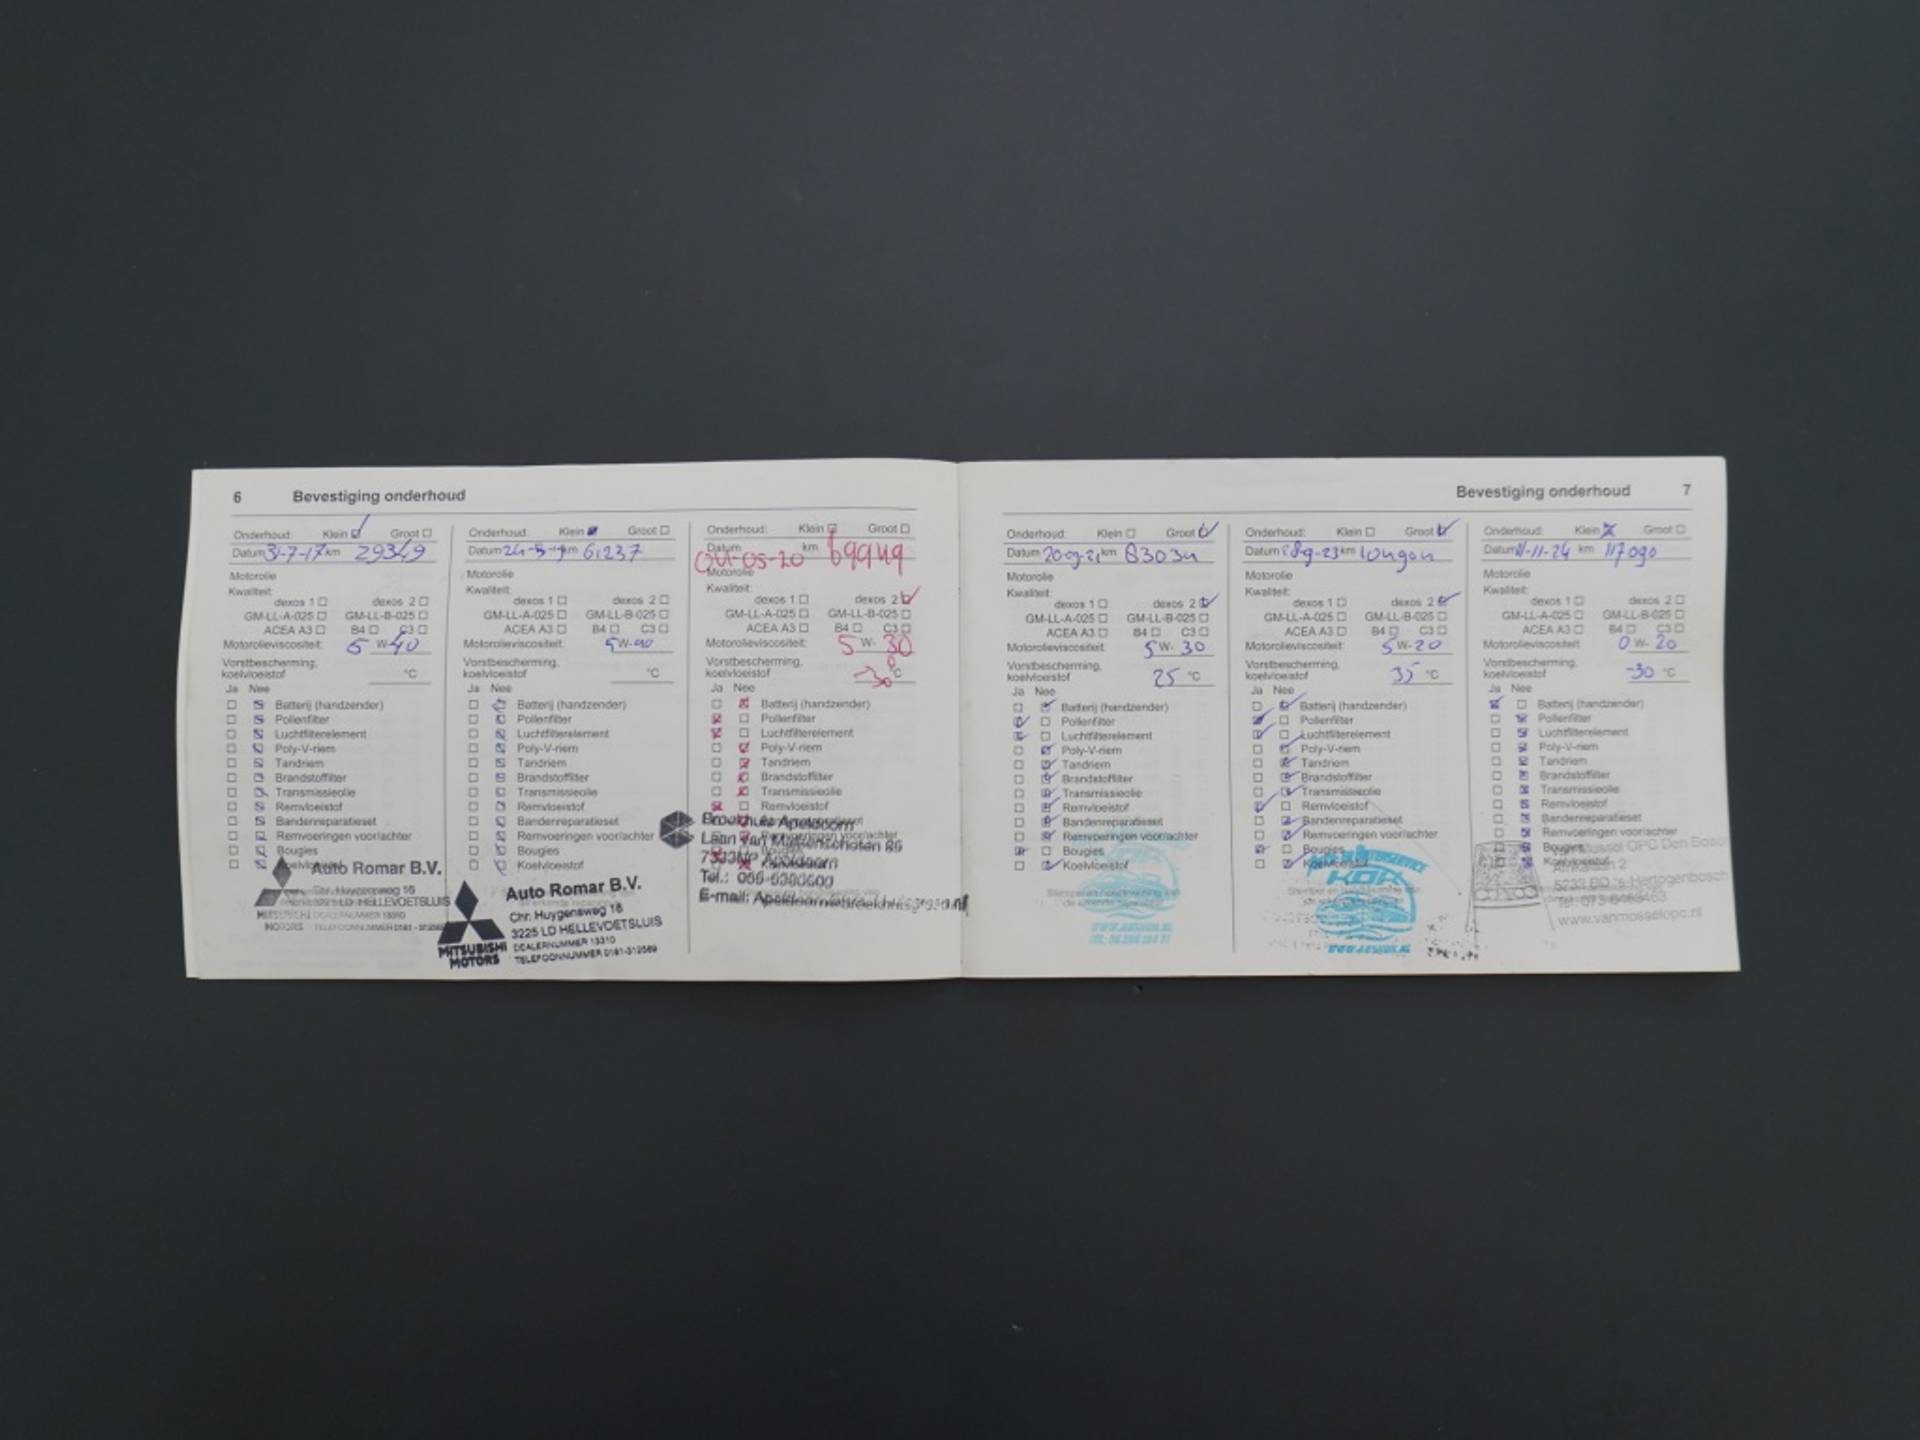 6 Bevestiging onderhoud
Onderhoud: Klein Groot
Datum 3-7-17 km 29349
Motorolie
Kwaliteit:
dexos 1 dexos 2
GM-LL-A-025 GM-LL-B-025
ACEA A3 B4 C3
Motorolieviscositeit: 5 W-40
Vorstbescherming,
koelvloeistof °C
Ja Nee
Batterij (handzender)
Pollenfilter
Luchtfilterelement
Poly-V-riem
Tandriem
Brandstoffilter
Transmissieolie
Remvloeistof
Bandenreparatieset
Remvoeringen voor/achter
Bougies
Koelvloeistof
Auto Romar B.V.
Chr. Huygensweg 16
3225 LD HELLEVOETSLUIS
MITSUBISHI DEALERNUMMER 13310
MOTORS TELEFOONNUMMER 0181-312569
Onderhoud: Klein Groot
Datum km 61237
Motorolie
Kwaliteit:
dexos 1 dexos 2
GM-LL-A-025 GM-LL-B-025
ACEA A3 B4 C3
Motorolieviscositeit: 5 W-40
Vorstbescherming,
koelvloeistof °C
Ja Nee
Batterij (handzender)
Pollenfilter
Luchtfilterelement
Poly-V-riem
Tandriem
Brandstoffilter
Transmissieolie
Remvloeistof
Bandenreparatieset
Remvoeringen voor/achter
Bougies
Koelvloeistof
Auto Romar B.V.
Chr. Huygensweg 16
3225 LD HELLEVOETSLUIS
MITSUBISHI DEALERNUMMER 13310
MOTORS TELEFOONNUMMER 0181-312569
Onderhoud: Klein Groot
Datum 04-05-20 km 69949
Motorolie
Kwaliteit:
dexos 1 dexos 2
GM-LL-A-025 GM-LL-B-025
ACEA A3 B4 C3
Motorolieviscositeit: 5 W- 30
Vorstbescherming,
koelvloeistof -30° °C
Ja Nee
Batterij (handzender)
Pollenfilter
Luchtfilterelement
Poly-V-riem
Tandriem
Brandstoffilter
Transmissieolie
Remvloeistof
Broekhuis Apeldoorn
Laan van Malkenschoten
Apeldoorn
Tel.:
E-mail:
7 Bevestiging onderhoud
Onderhoud: Klein Groot
Datum km 83034
Motorolie
Kwaliteit:
dexos 1 dexos 2
GM-LL-A-025 GM-LL-B-025
ACEA A3 B4 C3
Motorolieviscositeit: 5 W- 30
Vorstbescherming,
koelvloeistof 25 °C
Ja Nee
Batterij (handzender)
Pollenfilter
Luchtfilterelement
Poly-V-riem
Tandriem
Brandstoffilter
Transmissieolie
Remvloeistof
Bandenreparatieset
Remvoeringen voor/achter
Bougies
Koelvloeistof
Onderhoud: Klein Groot
Datum km
Motorolie
Kwaliteit:
dexos 1 dexos 2
GM-LL-A-025 GM-LL-B-025
ACEA A3 B4 C3
Motorolieviscositeit: 5 W-20
Vorstbescherming,
koelvloeistof 35 °C
Ja Nee
Batterij (handzender)
Pollenfilter
Luchtfilterelement
Poly-V-riem
Tandriem
Brandstoffilter
Transmissieolie
Remvloeistof
Bandenreparatieset
Remvoeringen voor/achter
Bougies
Koelvloeistof
KOK
Onderhoud: Klein Groot
Datum 11-11-24 km 117090
Motorolie
Kwaliteit:
dexos 1 dexos 2
GM-LL-A-025 GM-LL-B-025
ACEA A3 B4 C3
Motorolieviscositeit: 0 W- 20
Vorstbescherming,
koelvloeistof -30 °C
Ja Nee
Batterij (handzender)
Pollenfilter
Luchtfilterelement
Poly-V-riem
Tandriem
Brandstoffilter
Transmissieolie
Remvloeistof
Bandenreparatieset
Remvoeringen voor/achter
Bougies
Koelvloeistof
Van Mossel OPC Den Bosch
5233 BD 's-Hertogenbosch
www.vanmosselopc.nl